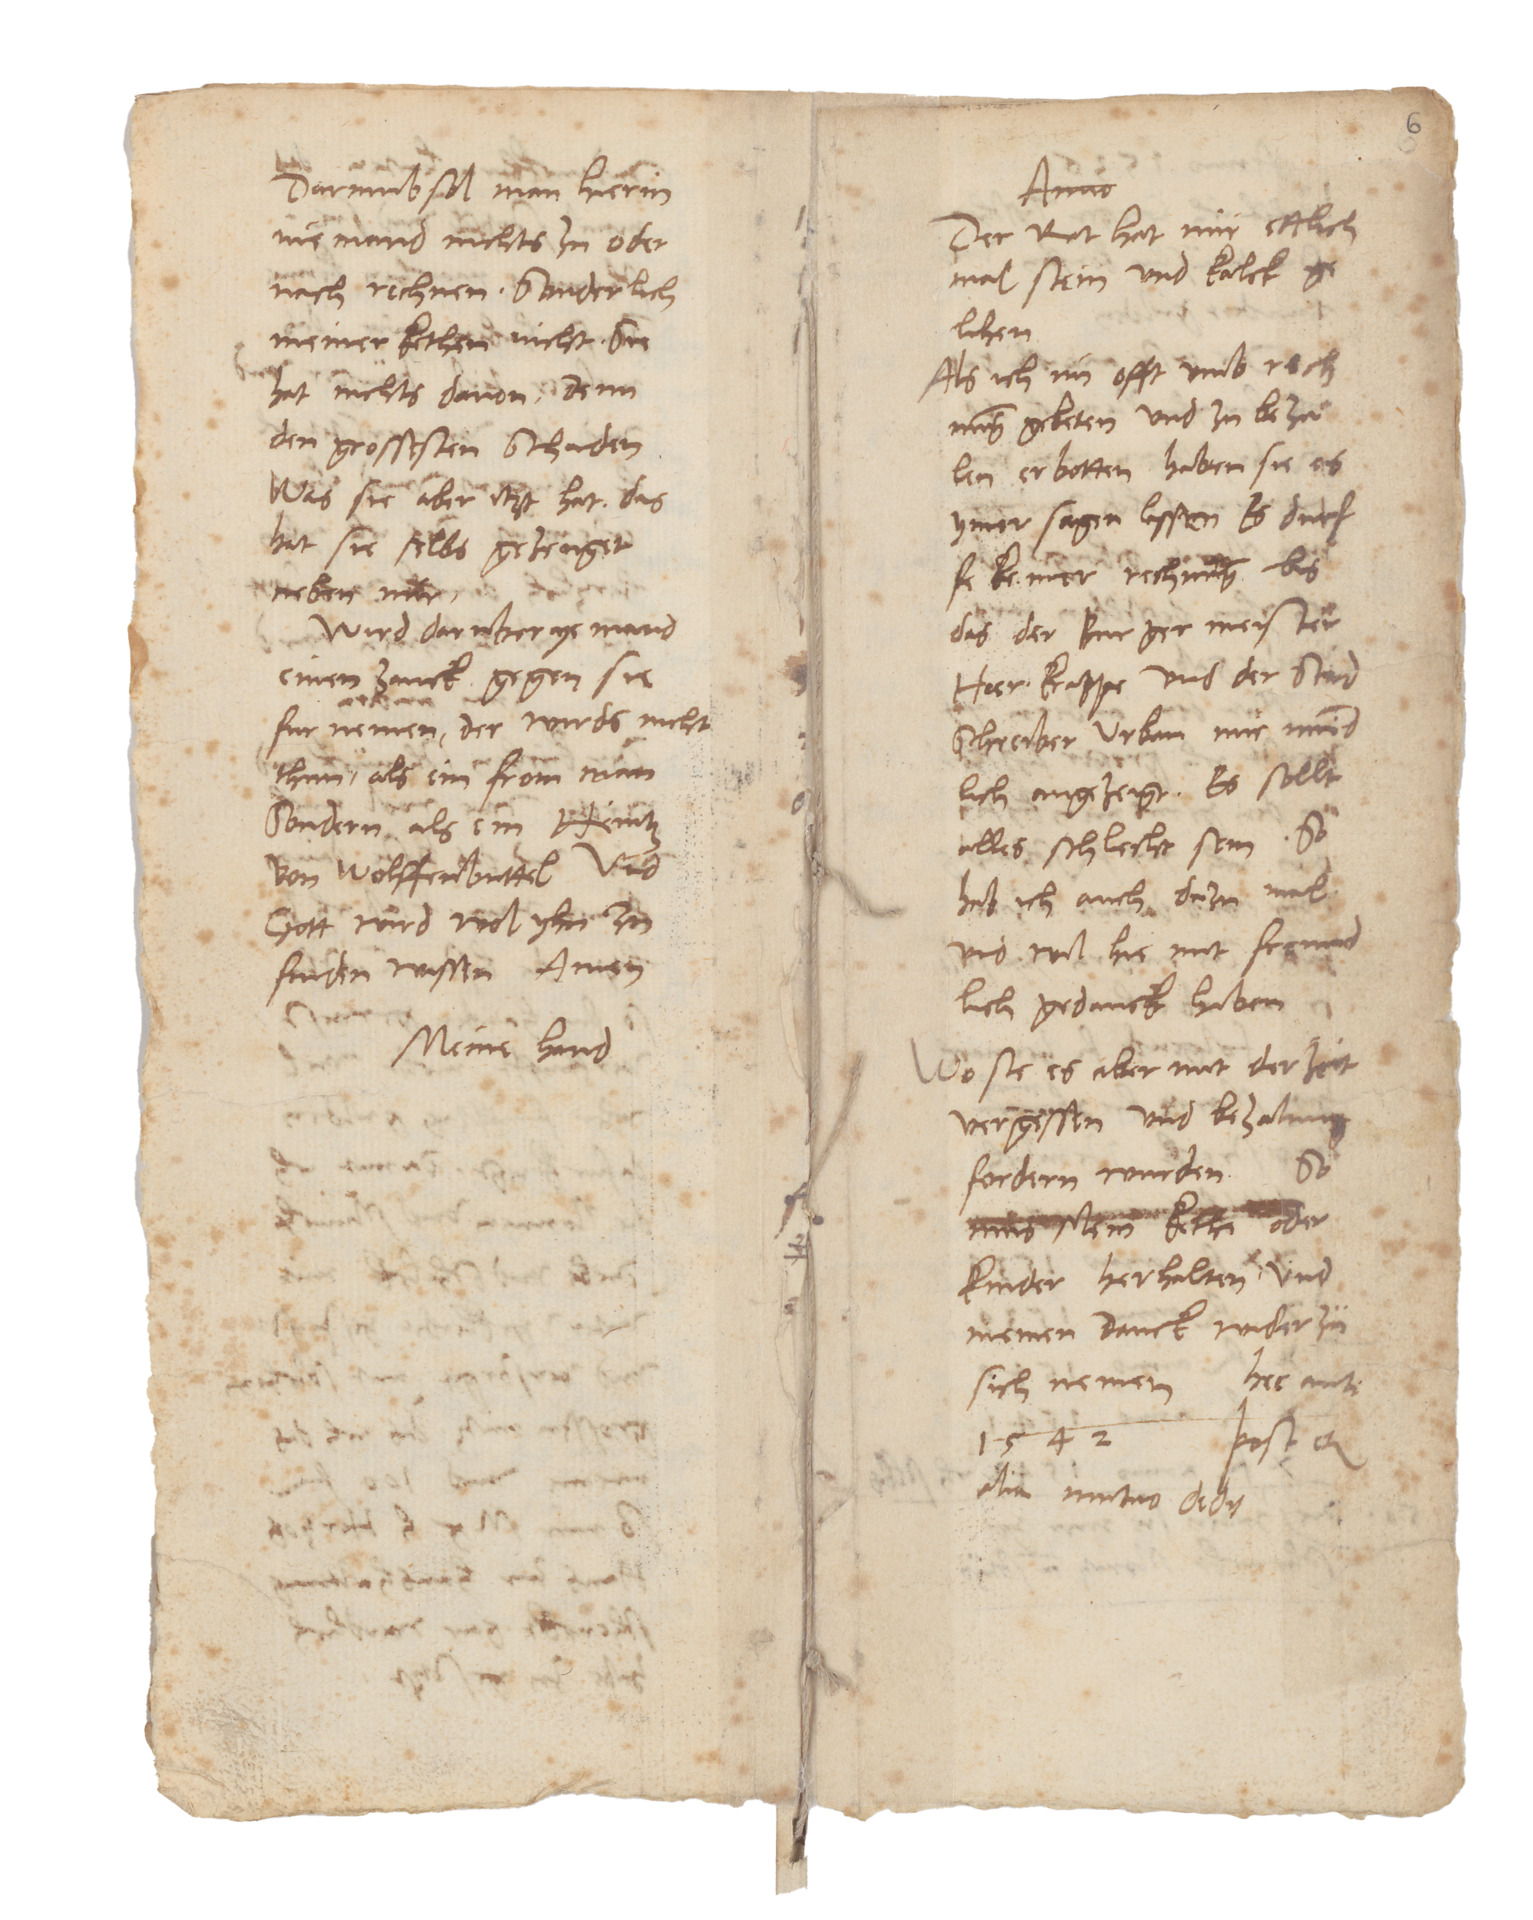 Darumb sol man hierin
niemand nichts zu oder
nach rechnen. Sonderlich
meiner kethen nicht. Sie
hat nichts dauon, denn
den grossesten Schaden
Was sie aber itzt hat. das
hat sie selbs gezeuget
neben mir,
Wird daruber yemand
einen zanck gegen sie
fur nemen, der wirds nicht
thun, als ein from man
Sondern als ein Heintz
von Wolffenbuttel Und
Gott wird wol yhn zu
finden wissen Amen
Meine hand
6
Anno
Der Rat hat mir ettlich
mal stein und kalck ge
lihen
Als ich nu offt umb rech
nung gebeten und zu beza
len erbotten haben sie es
ymer sagen lassen Es durf
fe keiner rechnung bis
das der Burgermeister
Herr krappe und der Stad
Schreiber Urban mir mund
lich angezeigt. Es sollt
alles schlecht sein. So
hab ich auch dazu mal
und wil hie mit freund
lich gedanckt haben
Wo sie es aber mit der zeit
vergessen und bezalung
fordern wurden. So
mus Mein kethe oder
kinder herhalten und
meinen Danck wider zu
sich nemen hec ante
1542 post
alia mutuo dedit